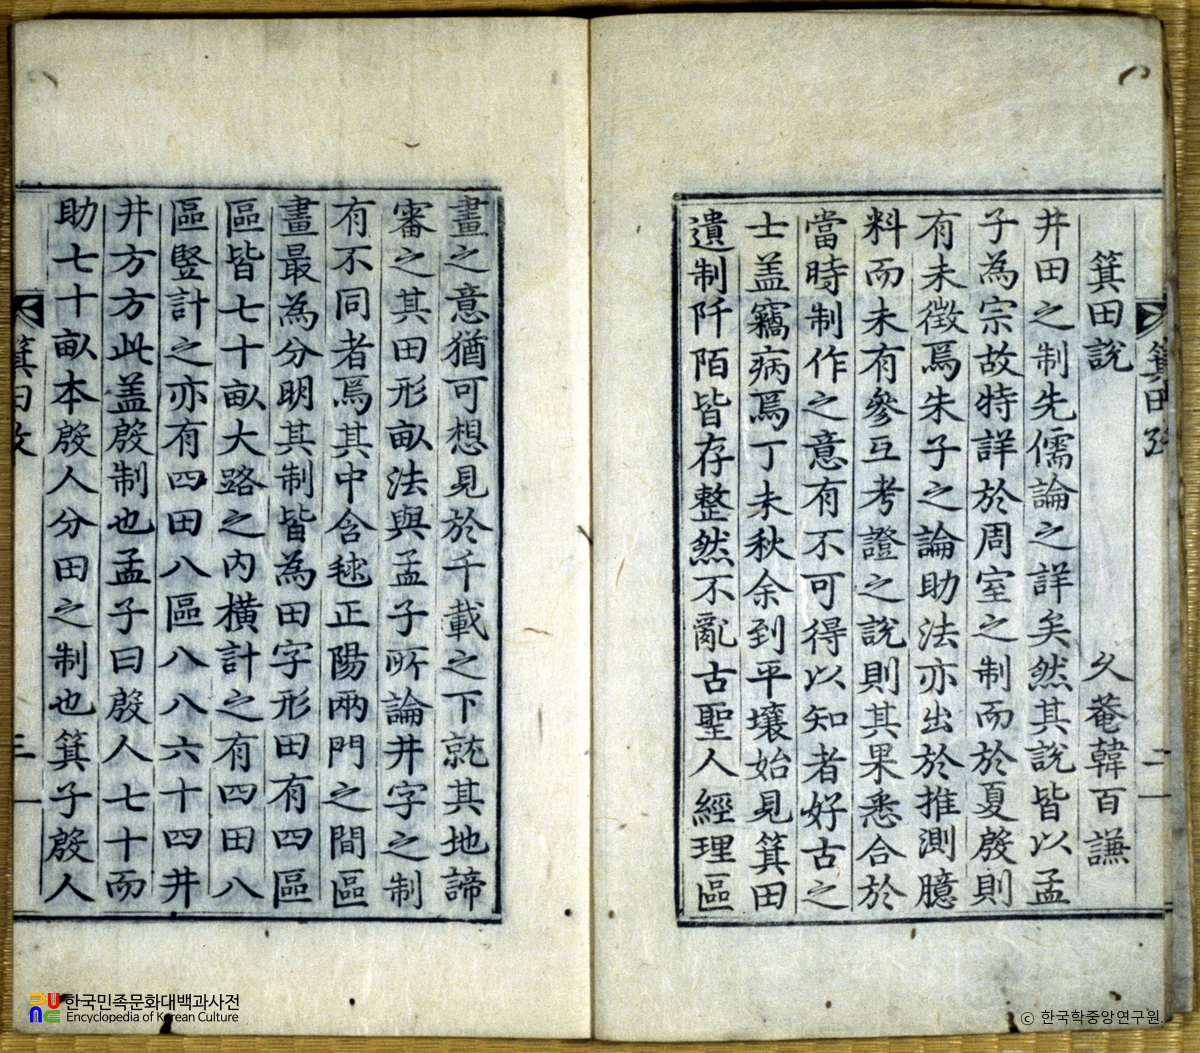 箕田攷 二
箕田說 久菴韓百謙
井田之制先儒論之詳矣然其說皆以孟
子為宗故特詳於周室之制而於夏殷則
有未徵焉朱子之論助法亦出於推測臆
料而未有參互考證之說則其果悉合於
當時制作之意有不可得以知者好古之
士盖竊病焉丁未秋余到平壤始見箕田
遺制阡陌皆存整然不亂古聖人經理區
畫之意猶可想見於千載之下就其地諦
審之其田形畆法與孟子所論井字之制
有不同者焉其中含毬正陽兩門之間區
畫最為分明其制皆為田字形田有四區
區皆七十畆大路之內橫計之有四田八
區竪計之亦有四田八區八八六十四井
井方方此盖殷制也孟子曰殷人七十而
助七十畆本殷人分田之制也箕子殷人
箕田攷 三
한국민족문화대백과사전
Encyclopedia of Korean Culture
ⓒ 한국학중앙연구원